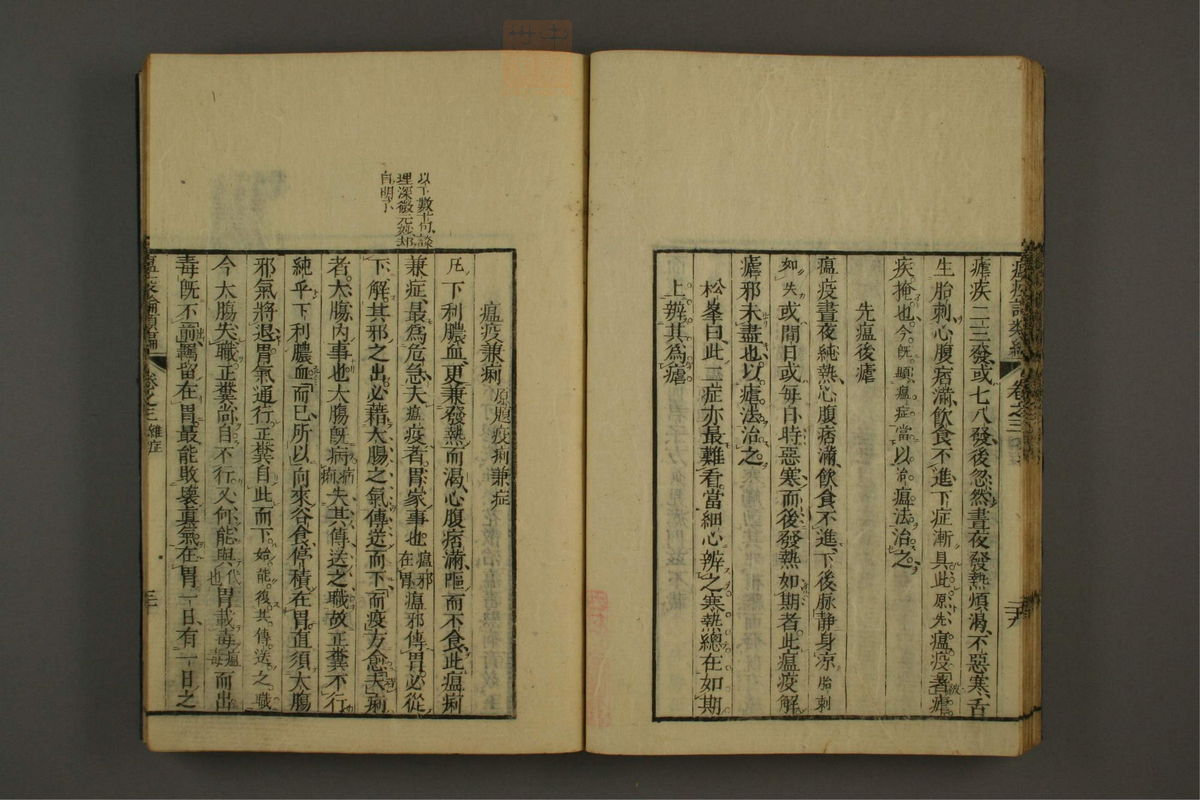 瘧疾二三發或七八發後忽然晝夜發熱煩渴不惡寒舌
生胎刺心腹痞滿飲食不進下症漸具此原先瘟疫著瘧
疾掩也今旣顯瘟症當以治瘟法治之
先瘟後瘧
瘟疫晝夜純熱心腹痞滿飲食不進下後脉静身凉胎刺
如失或間日或每日時惡寒而後發熱如期者此瘟疫解
瘧邪未盡也以瘧法治之
松峯曰此二症亦最難看當細心辨之寒熱總在如期
上辨其為瘧
以下數十句談
理深微元妙却
自明了
瘟疫兼痢原題疫痢兼症
凡下利膿血更兼發熱而渴心腹痞滿嘔而不食此瘟痢
兼症最為危急夫瘟疫者胃家事也瘟邪在胃瘟邪傳胃必從
下解其邪之出必藉大腸之氣傳送而下而疫方愈夫痢
者大腸內事也大腸旣病病痢失其傳送之職故正糞不行
純乎下利膿血而已所以向來谷食停積在胃直須大腸
邪氣將退胃氣通行正糞自此而下始能復其傳送之職
今大腸失職正糞尚自不行又何能與代也胃載毒瘟毒而出
毒旣不前羈留在胃最能敗壞真氣在胃一日有一日之
瘟疫論類編 卷之三 雜症